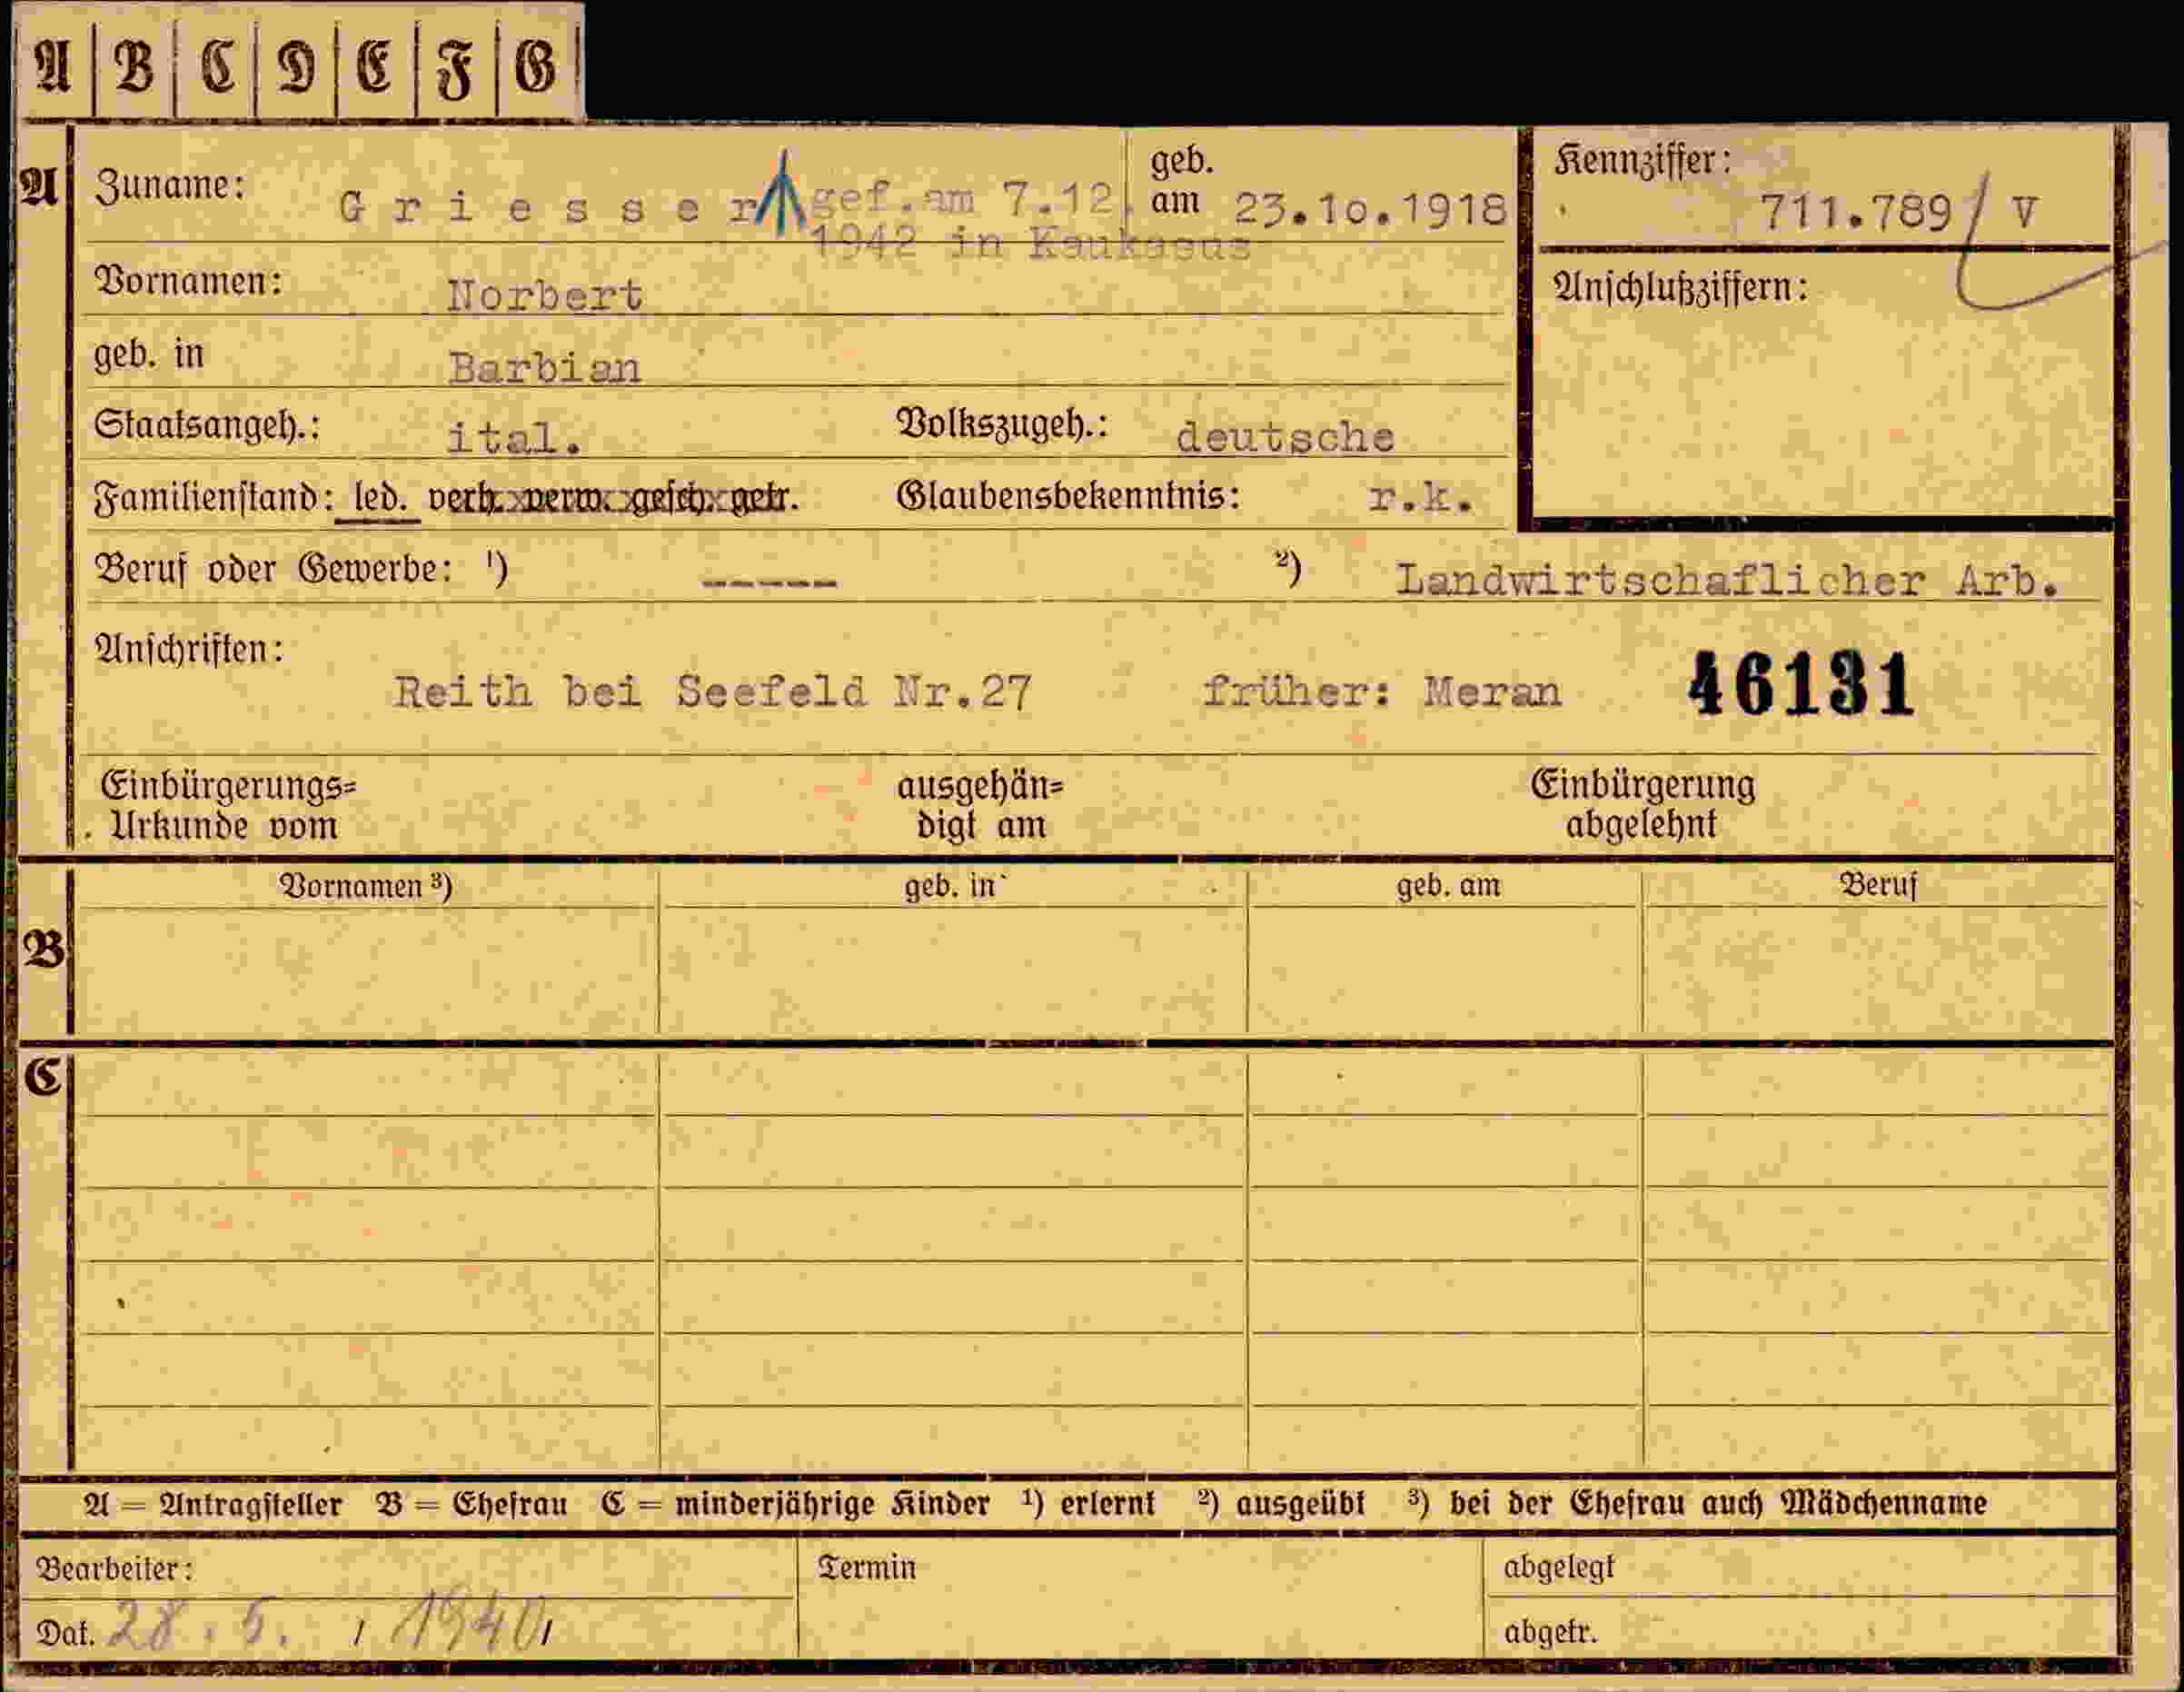 A B C D E F G
A Zuname: Griesser gef.am 7.12. geb. am 23.10.1918 Kennziffer: 711.789/V
1942 in Kaukasus
Vornamen: Norbert Anschlußziffern:
geb. in Barbian
Staatsangeh.: ital. Volkszugeh.: deutsche
Familienstand: led. verh. verw. gesch. getr. Glaubensbekenntnis: r.k.
Beruf oder Gewerbe: ¹) ----- ²) Landwirtschaflicher Arb.
Anschriften:
Reith bei Seefeld Nr.27 früher: Meran 46131
Einbürgerungs= ausgehän= Einbürgerung
Urkunde vom digt am abgelehnt
Vornamen ³) geb. in geb. am Beruf
B
C
A = Antragsteller B = Ehefrau C = minderjährige Kinder ¹) erlernt ²) ausgeübt ³) bei der Ehefrau auch Mädchenname
Bearbeiter: Termin abgelegt
Dat. 28.5. / 1940 / abgetr.